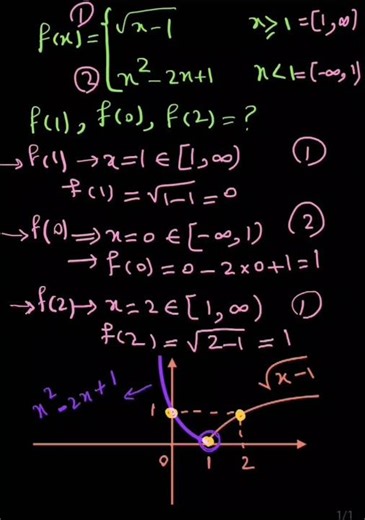 ① f(x) = { √(x-1)    x ≥ 1 = [1, ∞)
② x² - 2x + 1    x < 1 = (-∞, 1)
f(1), f(0), f(2) = ?
→ f(1) → x = 1 ∈ [1, ∞)    ①
f(1) = √(1-1) = 0
→ f(0) ⇒ x = 0 ∈ [-∞, 1)    ②
→ f(0) = 0 - 2×0 + 1 = 1
→ f(2) → x = 2 ∈ [1, ∞)    ①
f(2) = √(2-1) = 1
x² - 2x + 1 ←    √(x-1)
1
0    1    2
1/1